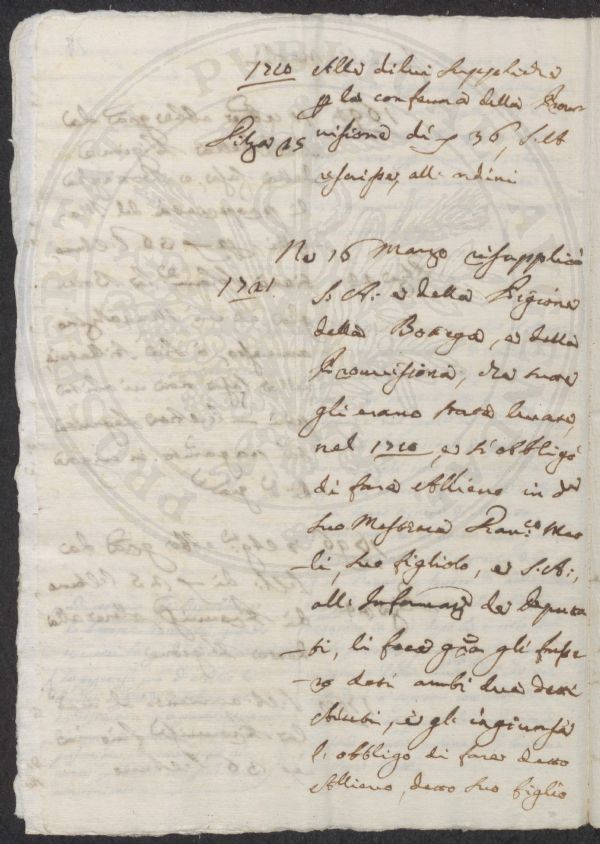 1720 Alla di lui supplica
p la conferma della Prov-
Filza 25 visione di 36, S. A.
rescrisse, alli ordini
Ne 16 Marzo risupplicò
1721 S. A: e della Pigione
della Bottega, e della
Provvisione, che tutte
gli erano state levate,
nel 1720, e s'obbligò
di fare Allievo in do
suo Mestiere Franco
suo figliolo, e S. A:,
alle Informazi de Deputa
ti, li fece gra gli fusse
ro dati ambi due detti
, e gl'ingiunse
l'obbligo di fare detto
Allievo, detto suo figlio